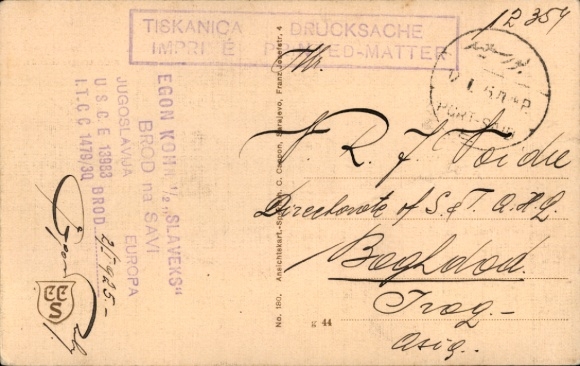 TISKANICA DRUCKSACHE
IMPRIMÉ PRINTED-MATTER
12354
PORT-SAID
EGON KOHN 1/2 „SLAVEKS“
BROD na SAVI
JUGOSLAVIJA EUROPA
U S C E 13983
I.T.C C 1479/30
BROD 2/I 925-
Egon
CCS
No. 180. Ansichtskart.-Spez. C. Ceapon, Sarajevo, Franz Josefstr. 4
Mr.
V. R. J. Voidie
Directorate of S. & T. A.H.Q.
Baghdad.
Iraq.-
Asia.
g 44